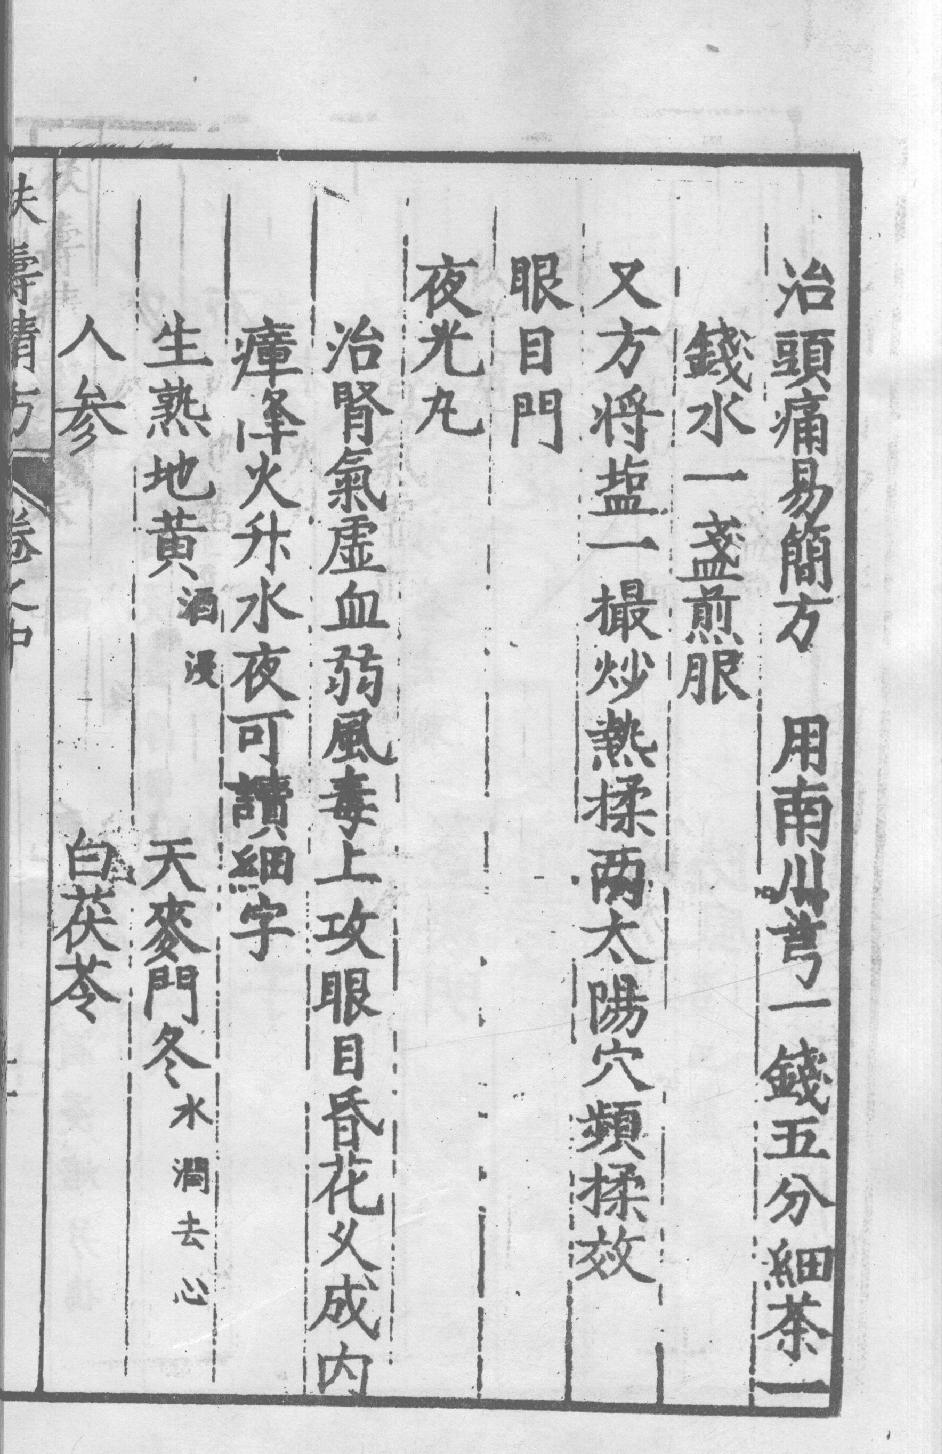 治頭痛易簡方　用南川芎一錢五分細茶一
錢水一盞煎服
又方将塩一撮炒熱揉两太陽穴頻揉效
眼目門
夜光丸
治腎氣虚血弱風毒上攻眼目昏花乆成内
瘴降火升水夜可讀細字
生熟地黄酒浸　天麥門冬水潤去心
人参　白茯苓
扶壽精方　卷之中